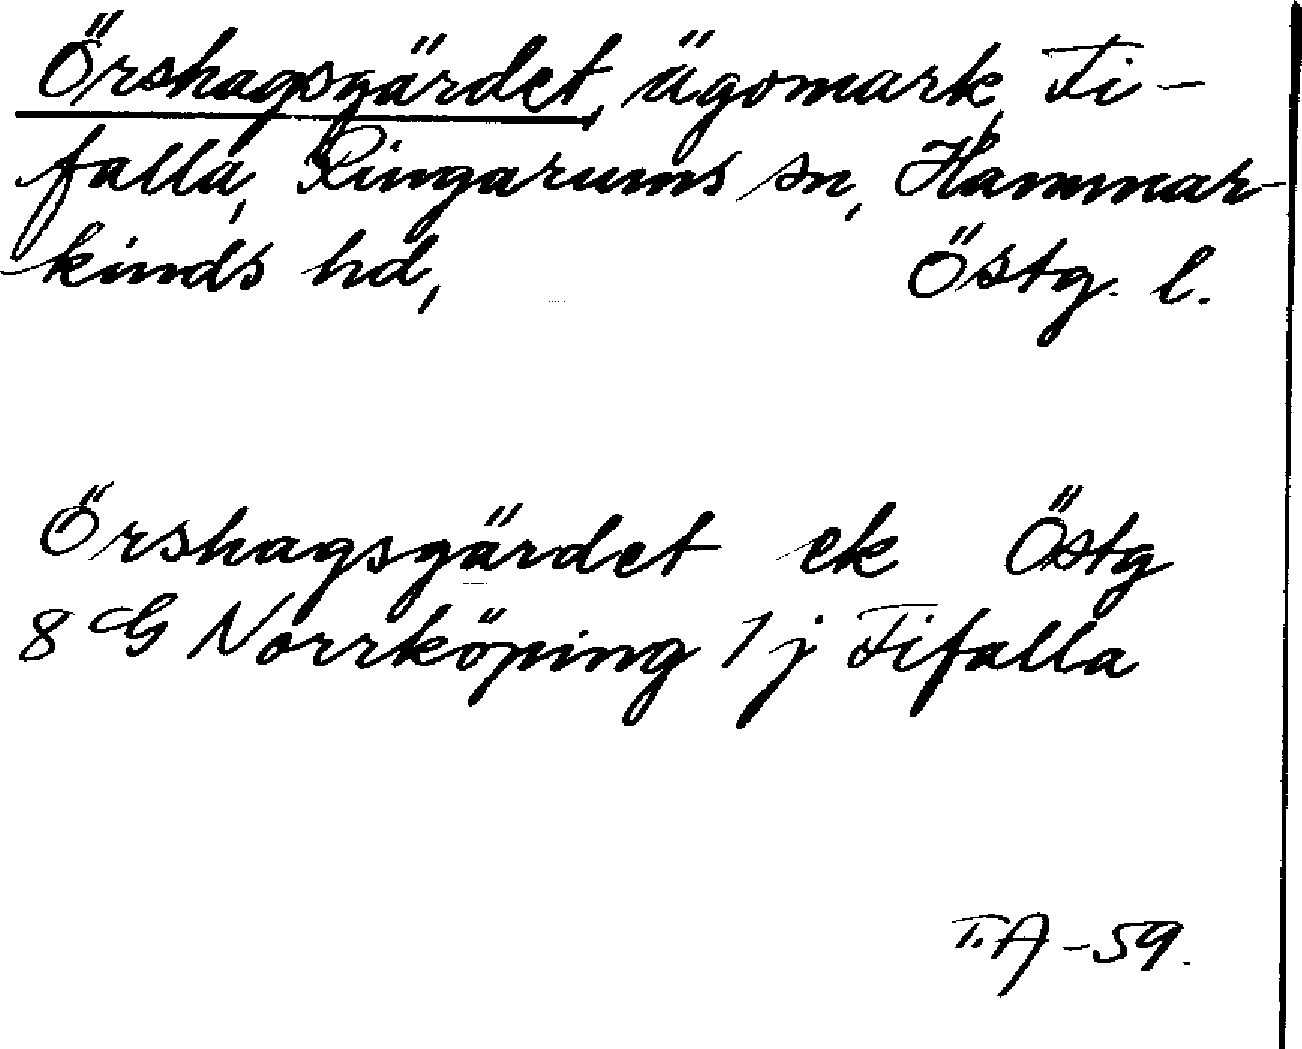 Örshagsgärdet, ägomark, Fi-
falla, Ringarums sn, Hammar-
kinds hd, Östg. l.
Örshagsgärdet ek Östg
8 G Norrköping 1 j Fifalla
T.A -59.